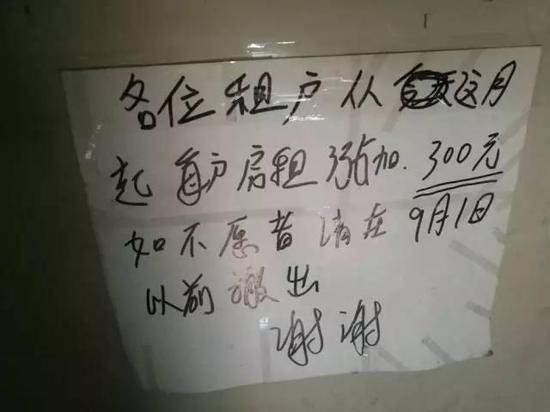 各位租户从这月
起每户房租涨加.300元
如不愿者请在9月1日
以前搬出
谢谢